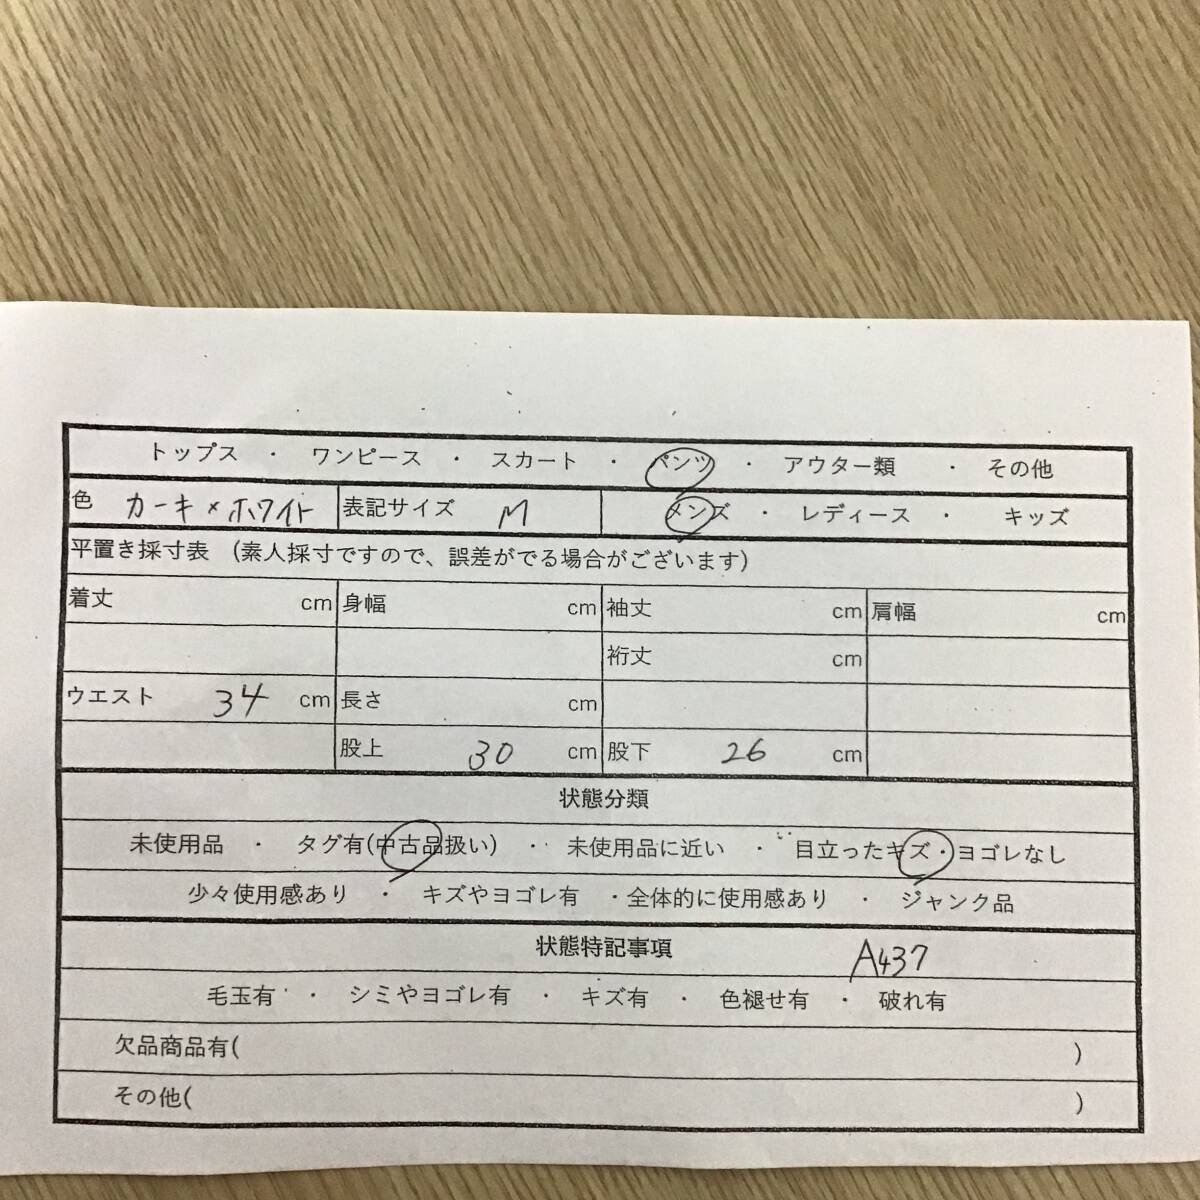 トップス ・ ワンピース ・ スカート ・ パンツ ・ アウター類 ・ その他
色 カーキ×ホワイト 表記サイズ M メンズ ・ レディース ・ キッズ
平置き採寸表 (素人採寸ですので、誤差がでる場合がございます)
着丈 cm 身幅 cm 袖丈 cm 肩幅 cm
裄丈 cm
ウエスト 34 cm 長さ cm
股上 30 cm 股下 26 cm
状態分類
未使用品 ・ タグ有(中古品扱い) ・ 未使用品に近い ・ 目立ったキズ・ヨゴレなし
少々使用感あり ・ キズやヨゴレ有 ・全体的に使用感あり ・ ジャンク品
状態特記事項 A437
毛玉有 ・ シミやヨゴレ有 ・ キズ有 ・ 色褪せ有 ・ 破れ有
欠品商品有( )
その他( )